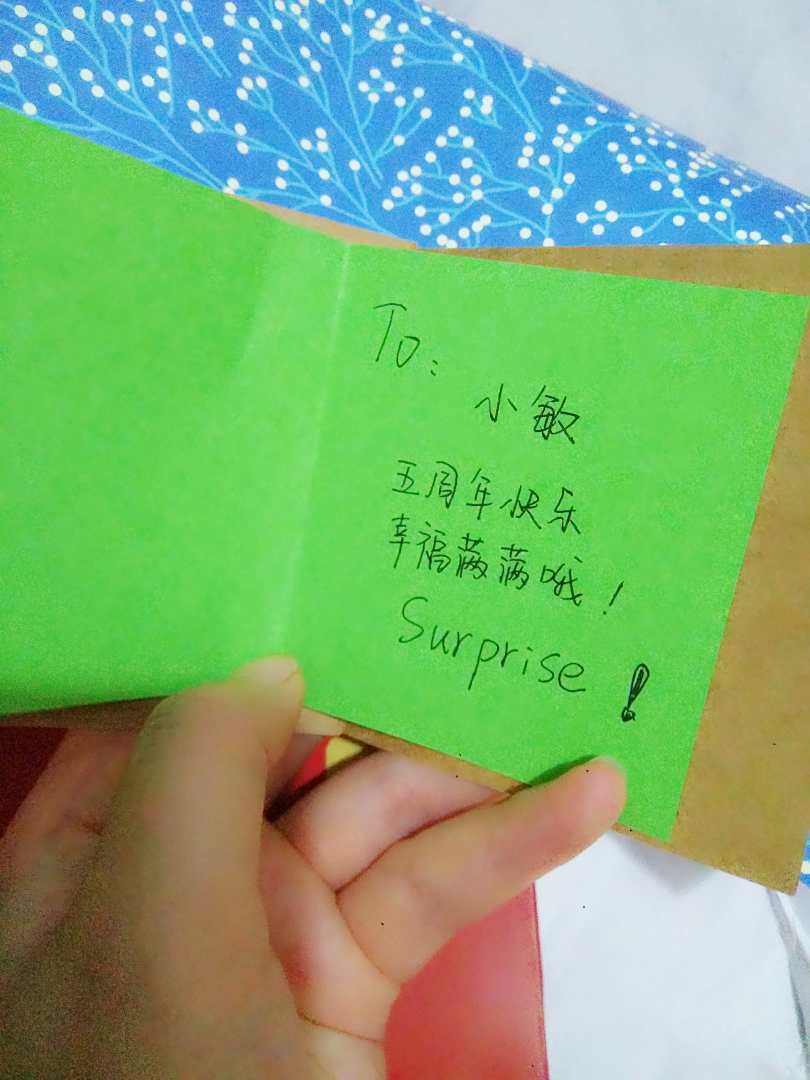 To:
小敏
五周年快乐
幸福满满哦！
Surprise!